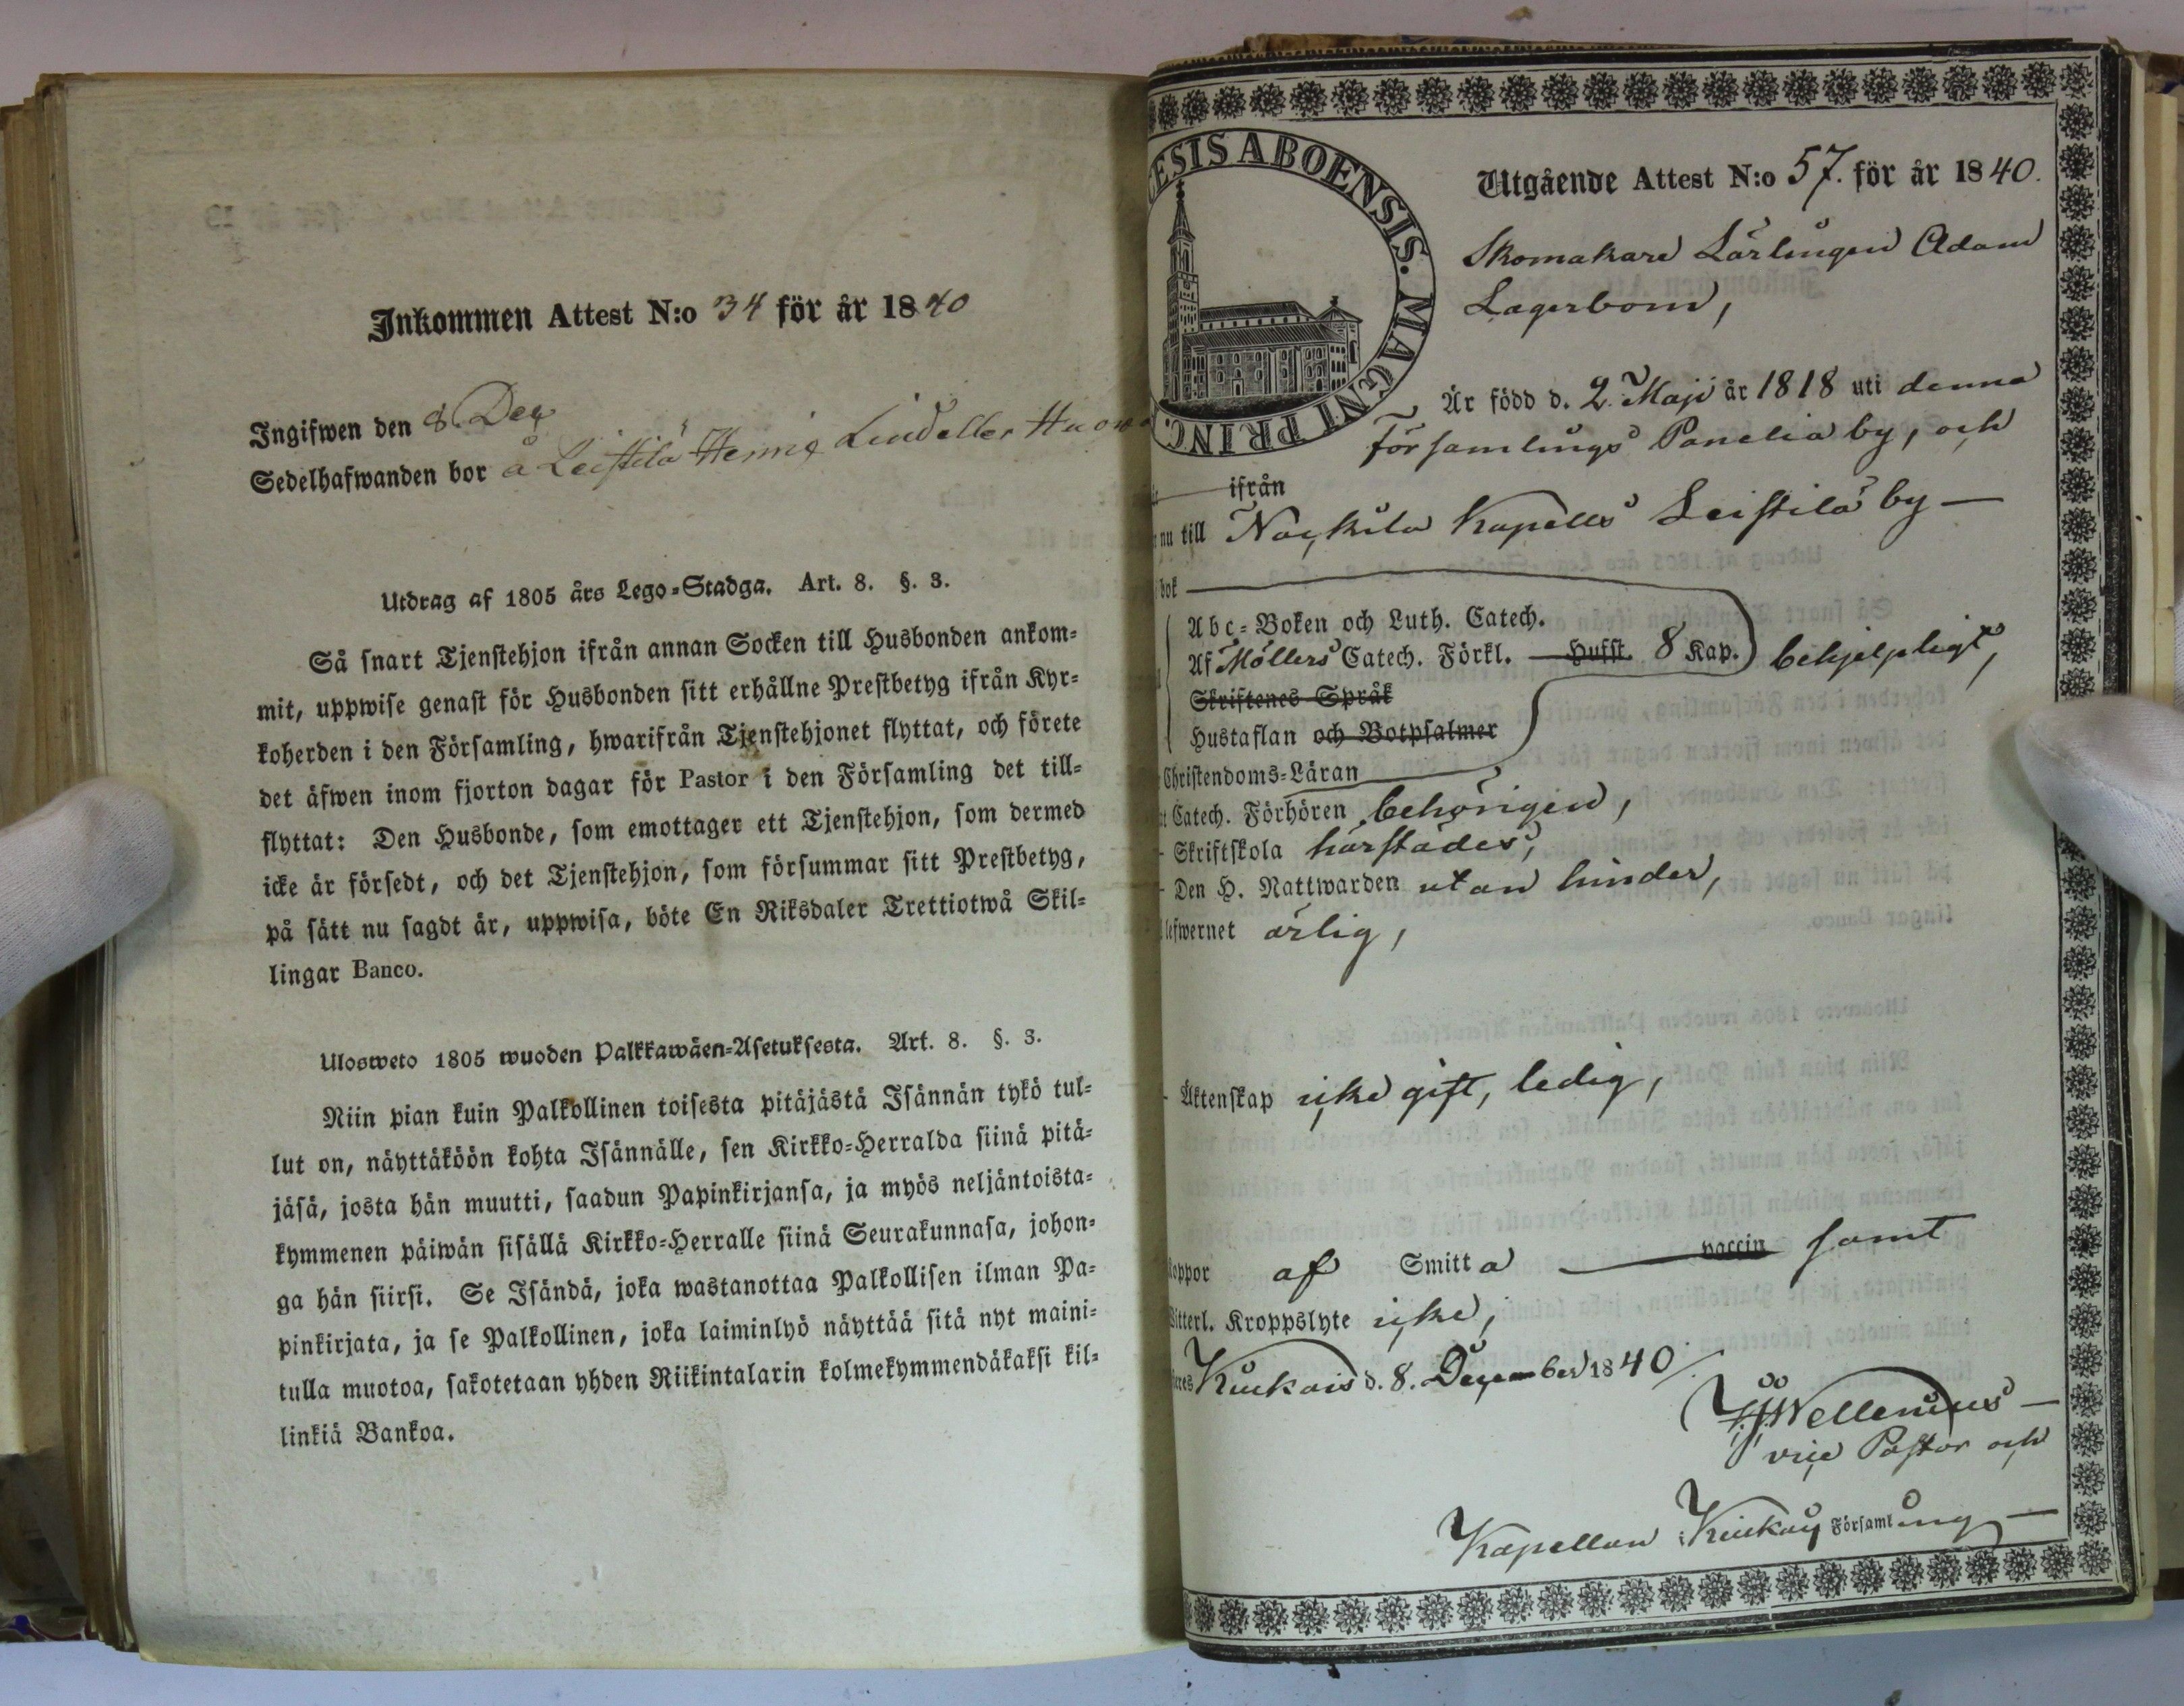 Inkommen Attest N:o 34 för år 1840
Ingifwen den 8 Dec
Sedelhafwanden bor å Leistilä
Utdrag af 1805 års Lego-Stadga. Art. 8. §. 3.
Så snart Tjenstehjon ifrån annan Socken till Husbonden ankom-
mit, uppwise genast för Husbonden sitt erhållne Prestbetyg ifrån Kyr-
koherden i den Församling, hwarifrån Tjenstehjonet flyttat, och förete
det äfwen inom fjorton dagar för Pastor i den Församling det till-
flyttat: Den Husbonde, som emottager ett Tjenstehjon, som dermed
icke är försedt, och det Tjenstehjon, som försummar sitt Prestbetyg,
på sätt nu sagdt är, uppwisa, böte En Riksdaler Trettiotwå Skil-
lingar Banco.
Ulosweto 1805 wuoden Palkkawäen-Asetuksesta. Art. 8. §. 3.
Niin pian kuin Palkollinen toisesta pitäjästä Isännän tykö tul-
lut on, näyttäköön kohta Isännälle, sen Kirkko-Herralda siinä pitä-
jäsä, josta hän muutti, saadun Papinkirjansa, ja myös neljäntoista-
kymmenen päiwän sisällä Kirkko-Herralle siinä Seurakunnasa, johon-
ga hän siirsi. Se Isändä, joka wastanottaa Palkollisen ilman Pa-
pinkirjata, ja se Palkollinen, joka laiminlyö näyttää sitä nyt maini-
tulla muotoa, sakotetaan yhden Riikintalarin kolmekymmendäkaksi kil-
linkiä Bankoa.
ESIS ABOENSIS. MAGNI PRINC.
Utgående Attest N:o 57. för år 1840.
Skomakare Lärlingen Adam
Lagerbom,
Är född d. 2. Maji år 1818 uti denna
församlings Panelia by, och
ifrån
nu till Nackila Kapells Leistilä by —
bok
Abc-Boken och Luth. Catech.
Af Möllers Catech. Förkl. Hufst. 8 Kap. behjelpligt,
Skriftenes Språk
Hustaflan och Botpsalmer
Christendoms-Läran
Catech. Förhören behörigen,
Skriftskola härstädes,
Den H. Nattwarden utan hinder,
lefwernet ärlig,
Äktenskap icke gift, ledig,
koppor af Smitta vaccin samt
Witterl. Kroppslyte icke,
Kiukais d. 8. December 1840
Wellenius —
vice Pastor och
Kapellan i Kiukais Församling —